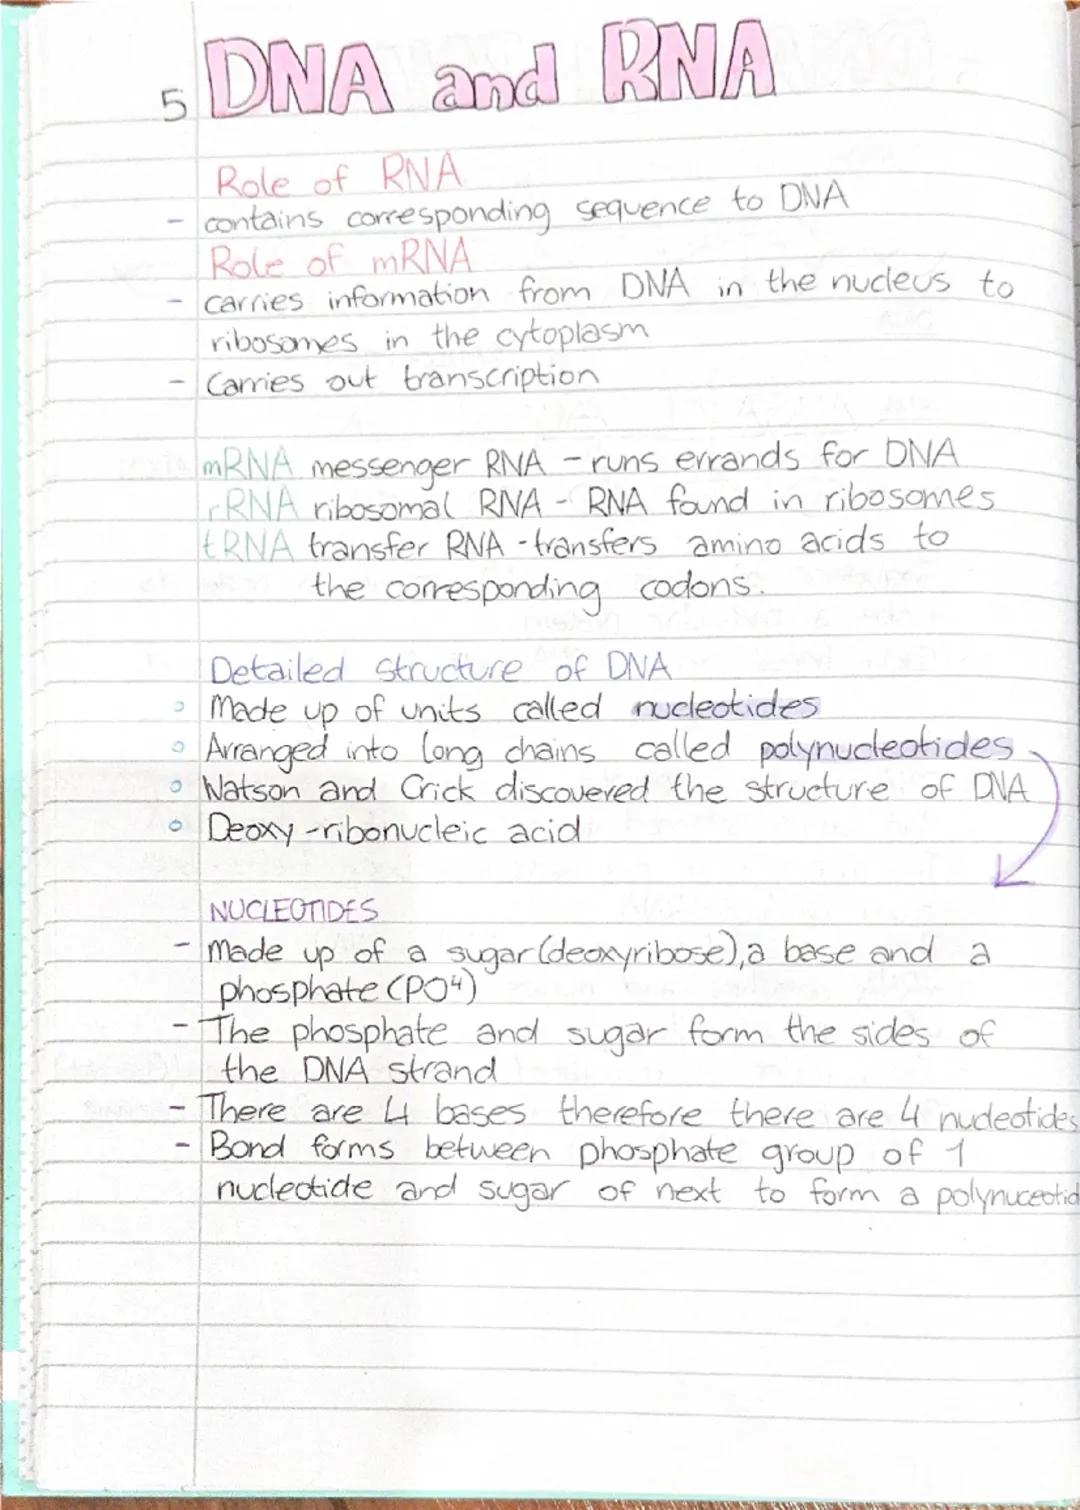 5 DNA and RNA
Role of RNA
- contains corresponding sequence to DNA
Role of mRNA
- carries information from DNA in the nucleus to
ribosomes in the cytoplasm
- Carries out transcription
mRNA messenger RNA - runs errands for DNA
rRNA ribosomal RNA - RNA found in ribosomes
tRNA transfer RNA - transfers amino acids to
the corresponding codons.
Detailed structure of DNA
° Made up of units called nucleotides
° Arranged into long chains called polynucleotides
° Watson and Crick discovered the structure of DNA
° Deoxy-ribonucleic acid
NUCLEOTIDES
- Made up of a sugar (deoxyribose), a base and a
phosphate (PO⁴)
- The phosphate and sugar form the sides of
the DNA strand
- There are 4 bases therefore there are 4 nucleotides
- Bond forms between phosphate group of 1
nucleotide and sugar of next to form a polynuceotid